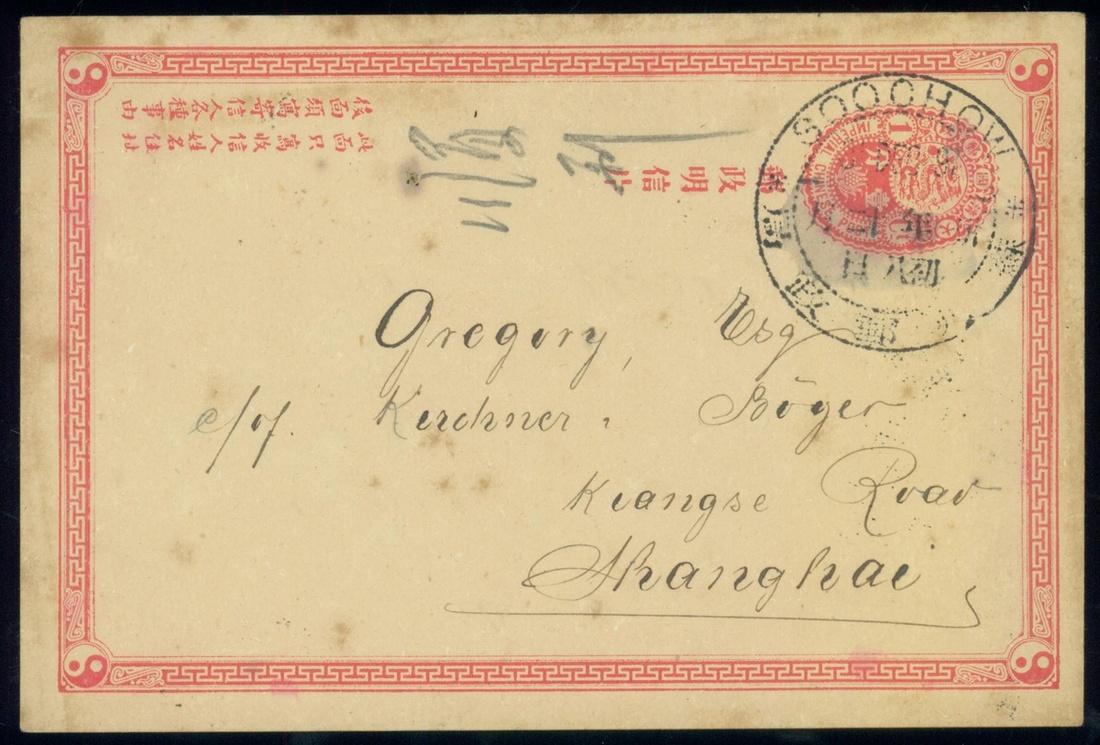 郵政明信片
此面只寫收信人姓名住址
後面須寫寄信人各種事由
SOOCHOW
1
IMPERIAL
Gregory, Esq
c/o/. Kirchner, Böger
Kiangse Road
Shanghai